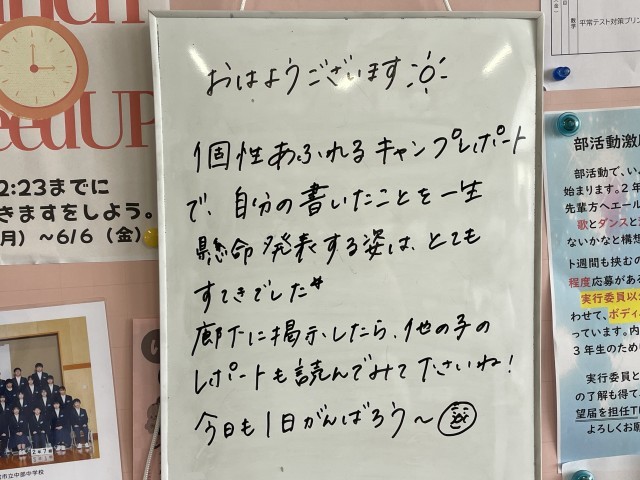 eedUP
2:23までに
きますをしよう。
月）～6/6（金）
おはようございます
個性あふれるキャンプレポート
で、自分の書いたことを一生
懸命発表する姿は、とても
すてきでした
廊下に掲示したら、他の子の
レポートも読んでみて下さいね！
今日も1日がんばろう～
市立中部中学校
数学
平常テスト対策プリン
部活動激励
部活動で、い
始まります。２年
先輩方へエール
歌とダンスと
ないかなと構想
ト週間も挟むの
程度応募がある
実行委員以
わせて、ボディ
っています。内
３年生のため
実行委員と
の了解も得て
望届を担任T
よろしくお願